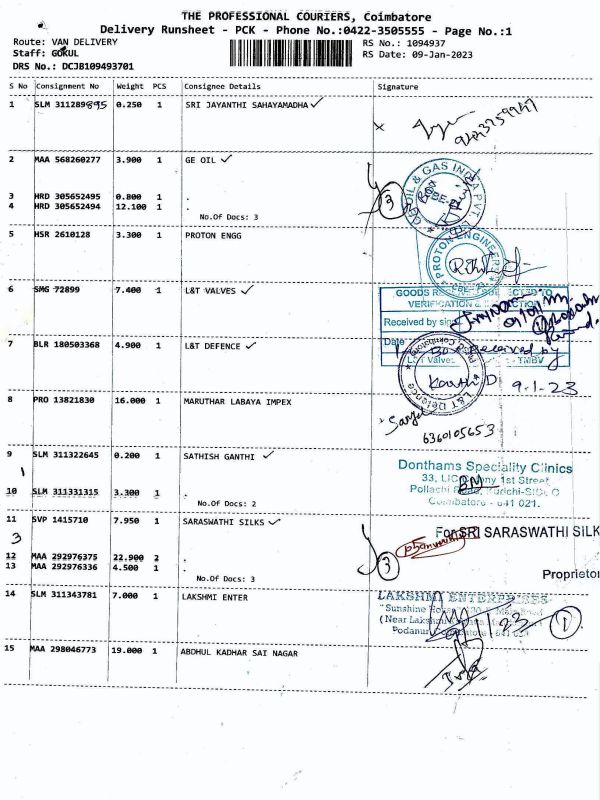 THE PROFESSIONAL COURIERS, Coimbatore
Delivery Runsheet - PCK - Phone No.:0422-3505555 - Page No.:1
Route: VAN DELIVERY RS No.: 1094937
Staff: GOKUL RS Date: 09-Jan-2023
DRS No.: DCJB109493701
S No Consignment No Weight PCS Consignee Details Signature
1 SLM 311289895 0.250 1 SRI JAYANTHI SAHAYAMADHA
2 MAA 568260277 3.900 1 GE OIL
OIL & GAS INDIA PVT.
3 HRD 305652495 0.800 1 .
3
4 HRD 305652494 12.100 1 .
No.Of Docs: 3
5 HSR 2610128 3.300 1 PROTON ENGG
PROTON ENGINEERS
6 SMG 72899 7.400 1 L&T VALVES
GOODS
VERIFICATION &
Received by
Date
L&T Valves TMBV
7 BLR 180503368 4.900 1 L&T DEFENCE
Box received by
L&T Defence
9-1-23
8 PRO 13821830 16.000 1 MARUTHAR LABAYA IMPEX
6360105653
9 SLM 311322645 0.200 1 SATHISH GANTHI
1
Donthams Speciality Clinics
1st Street
10 SLM 311331315 3.300 1 .
Pollachi Road, Kurichi-SIDCO
No.Of Docs: 2
Coimbatore - 641 021.
11 SVP 1415710 7.950 1 SARASWATHI SILKS
3
For SRI SARASWATHI SILK
12 MAA 292976375 22.900 2 .
13 MAA 292976336 4.500 1 .
3
No.Of Docs: 3
Proprietor
14 SLM 311343781 7.000 1 LAKSHMI ENTER
LAKSHMI ENTERPRISES
"Sunshine
(Near Lakshmi
1
Podanur
15 MAA 298046773 19.000 1 ABDHUL KADHAR SAI NAGAR